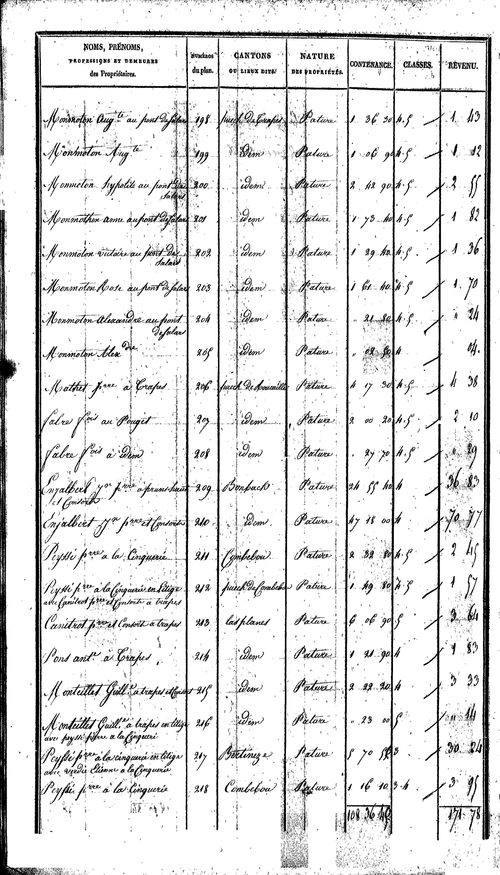 NOMS, PRÉNOMS, PROFESSIONS ET DEMEURES des Propriétaires. NUMÉROS du plan. CANTONS OU LIEUX DITS. NATURE DES PROPRIÉTÉS. CONTENANCE. CLASSES. REVENU.
Monmoton Aug.te au pont de Salars 198 puech de Trapes Pature 1 36 30 4.5 1 43
Monmoton Aug.te 199 idem Pature 1 06 90 4.5 1 12
Monmoton hypolite au pont de Salars 200 idem Pature 2 42 90 4.5 2 55
Monmothon anne au pont de Salars 201 idem Pature 1 73 40 4.5 1 82
Monmoton victoire au pont de Salars 202 idem Pature 1 29 40 4.5 1 36
Monmoton Rose au pont de Salars 203 idem Pature 1 61 40 4.5 1 70
Monmoton alexandre au pont de Salars 204 idem Pature " 21 80 4.5 " 24
Monmoton Alex.dre 205 idem Pature " 02 50 4 04
Mathet p.rre à Trapes 206 puech de Pature 4 17 30 4.5 4 38
falre f.ois au Pouget 207 idem Pature 2 00 20 4.5 2 10
falre f.ois à idem 208 idem Pature " 27 70 4.5 " 29
Enjalbert p.rre à et Consorts 209 Bonbach Pature 24 55 40 4 36 83
Enjalbert p.rre et Consorts 210 idem Pature 47 18 00 4 70 77
Peyssi p.rre à la Cinquerie 211 Combebou Pature 2 32 80 4.5 2 45
Peyssi p.rre à la Cinquerie en litige avec Canitrot p.rre et Consorts à trapes 212 puech de Combebou Pature 1 49 80 4.5 1 57
Canitrot p.rre et Consorts à trapes 213 las planes Pature 6 06 90 5 3 64
Pons ant.e à Trapes 214 idem Pature 1 21 90 4 1 83
Monteillet Guill.e à trapes et Consorts 215 idem Pature 2 22 20 4 3 33
Monteillet Guill.e à trapes en litige avec peyssi pierre a la Cinquerie 216 idem Pature " 23 00 5 " 14
Peyssi p.rre à la cinquerie en litige avec Etienne à la Cinquerie 217 Pature 5 70 56 3 30 24
Peyssi p.rre à la Cinquerie 218 Combebou Pature 1 16 10 3.4 3 95
108 36 45 171 78